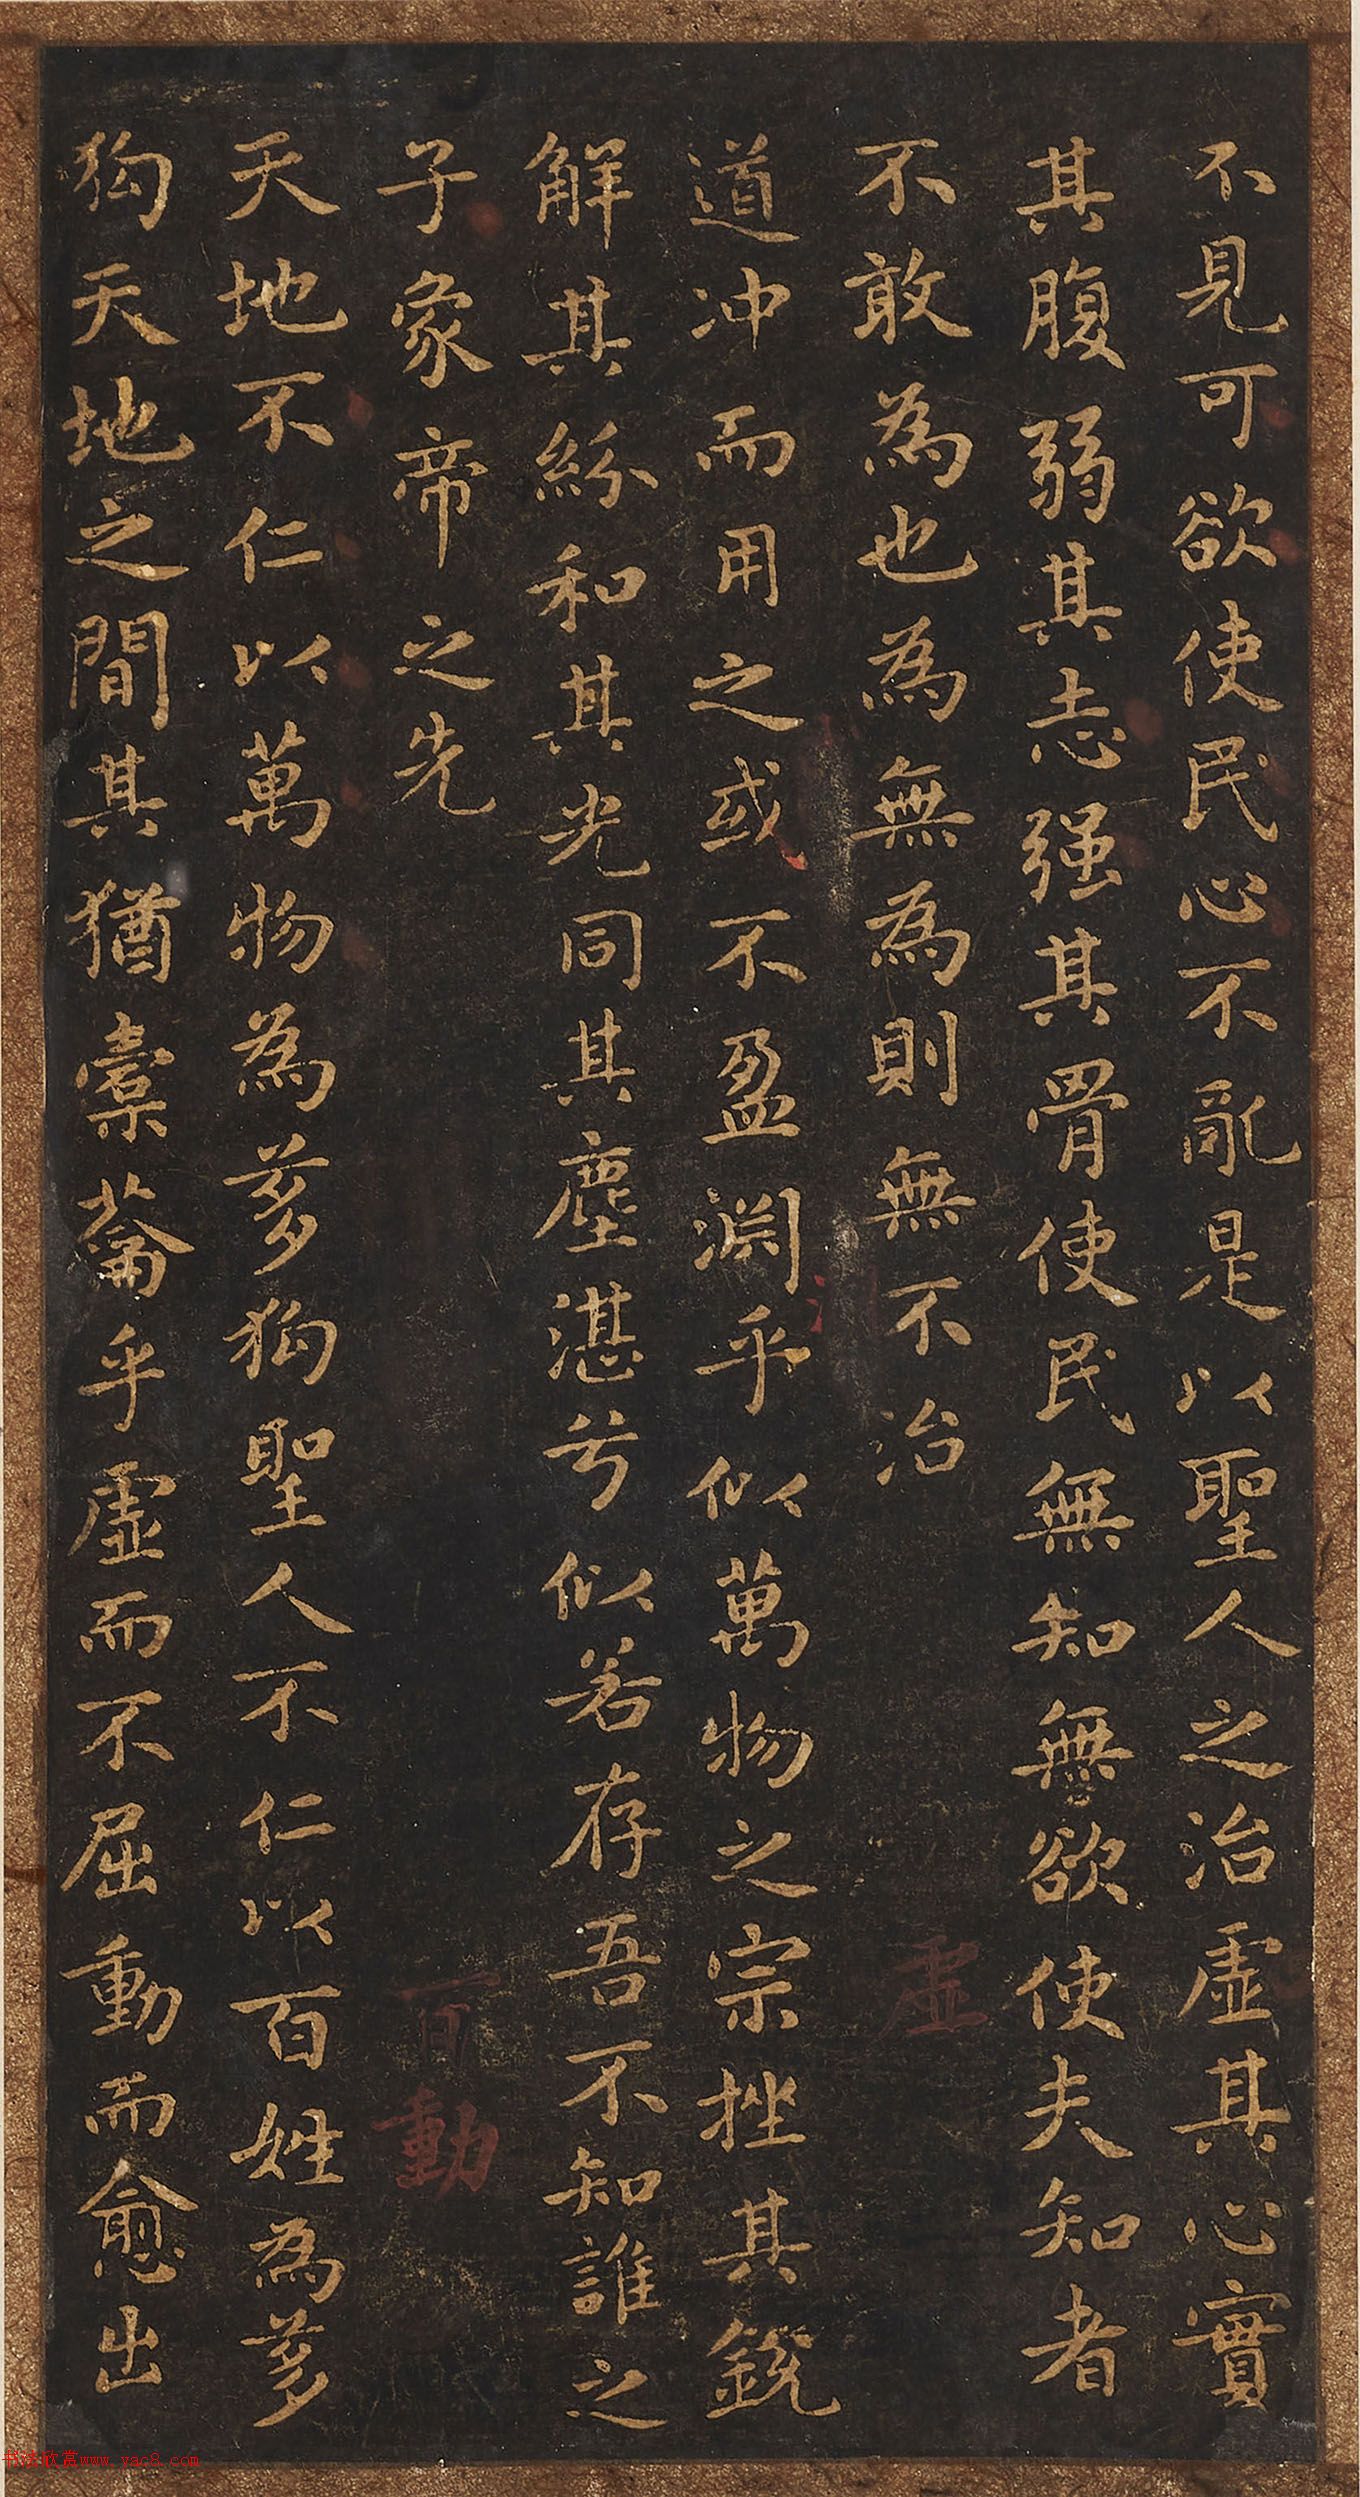 不見可欲使民心不亂是以聖人之治虛其心實
其腹弱其志强其骨使民無知無欲使夫知者
不敢為也為無為則無不治
虛
道沖而用之或不盈淵乎似萬物之宗挫其銳
解其紛和其光同其塵湛兮似若存吾不知誰之
子象帝之先
百動
天地不仁以萬物為芻狗聖人不仁以百姓為芻
狗天地之間其猶橐籥乎虛而不屈動而愈出
书法欣赏www.yac8.com